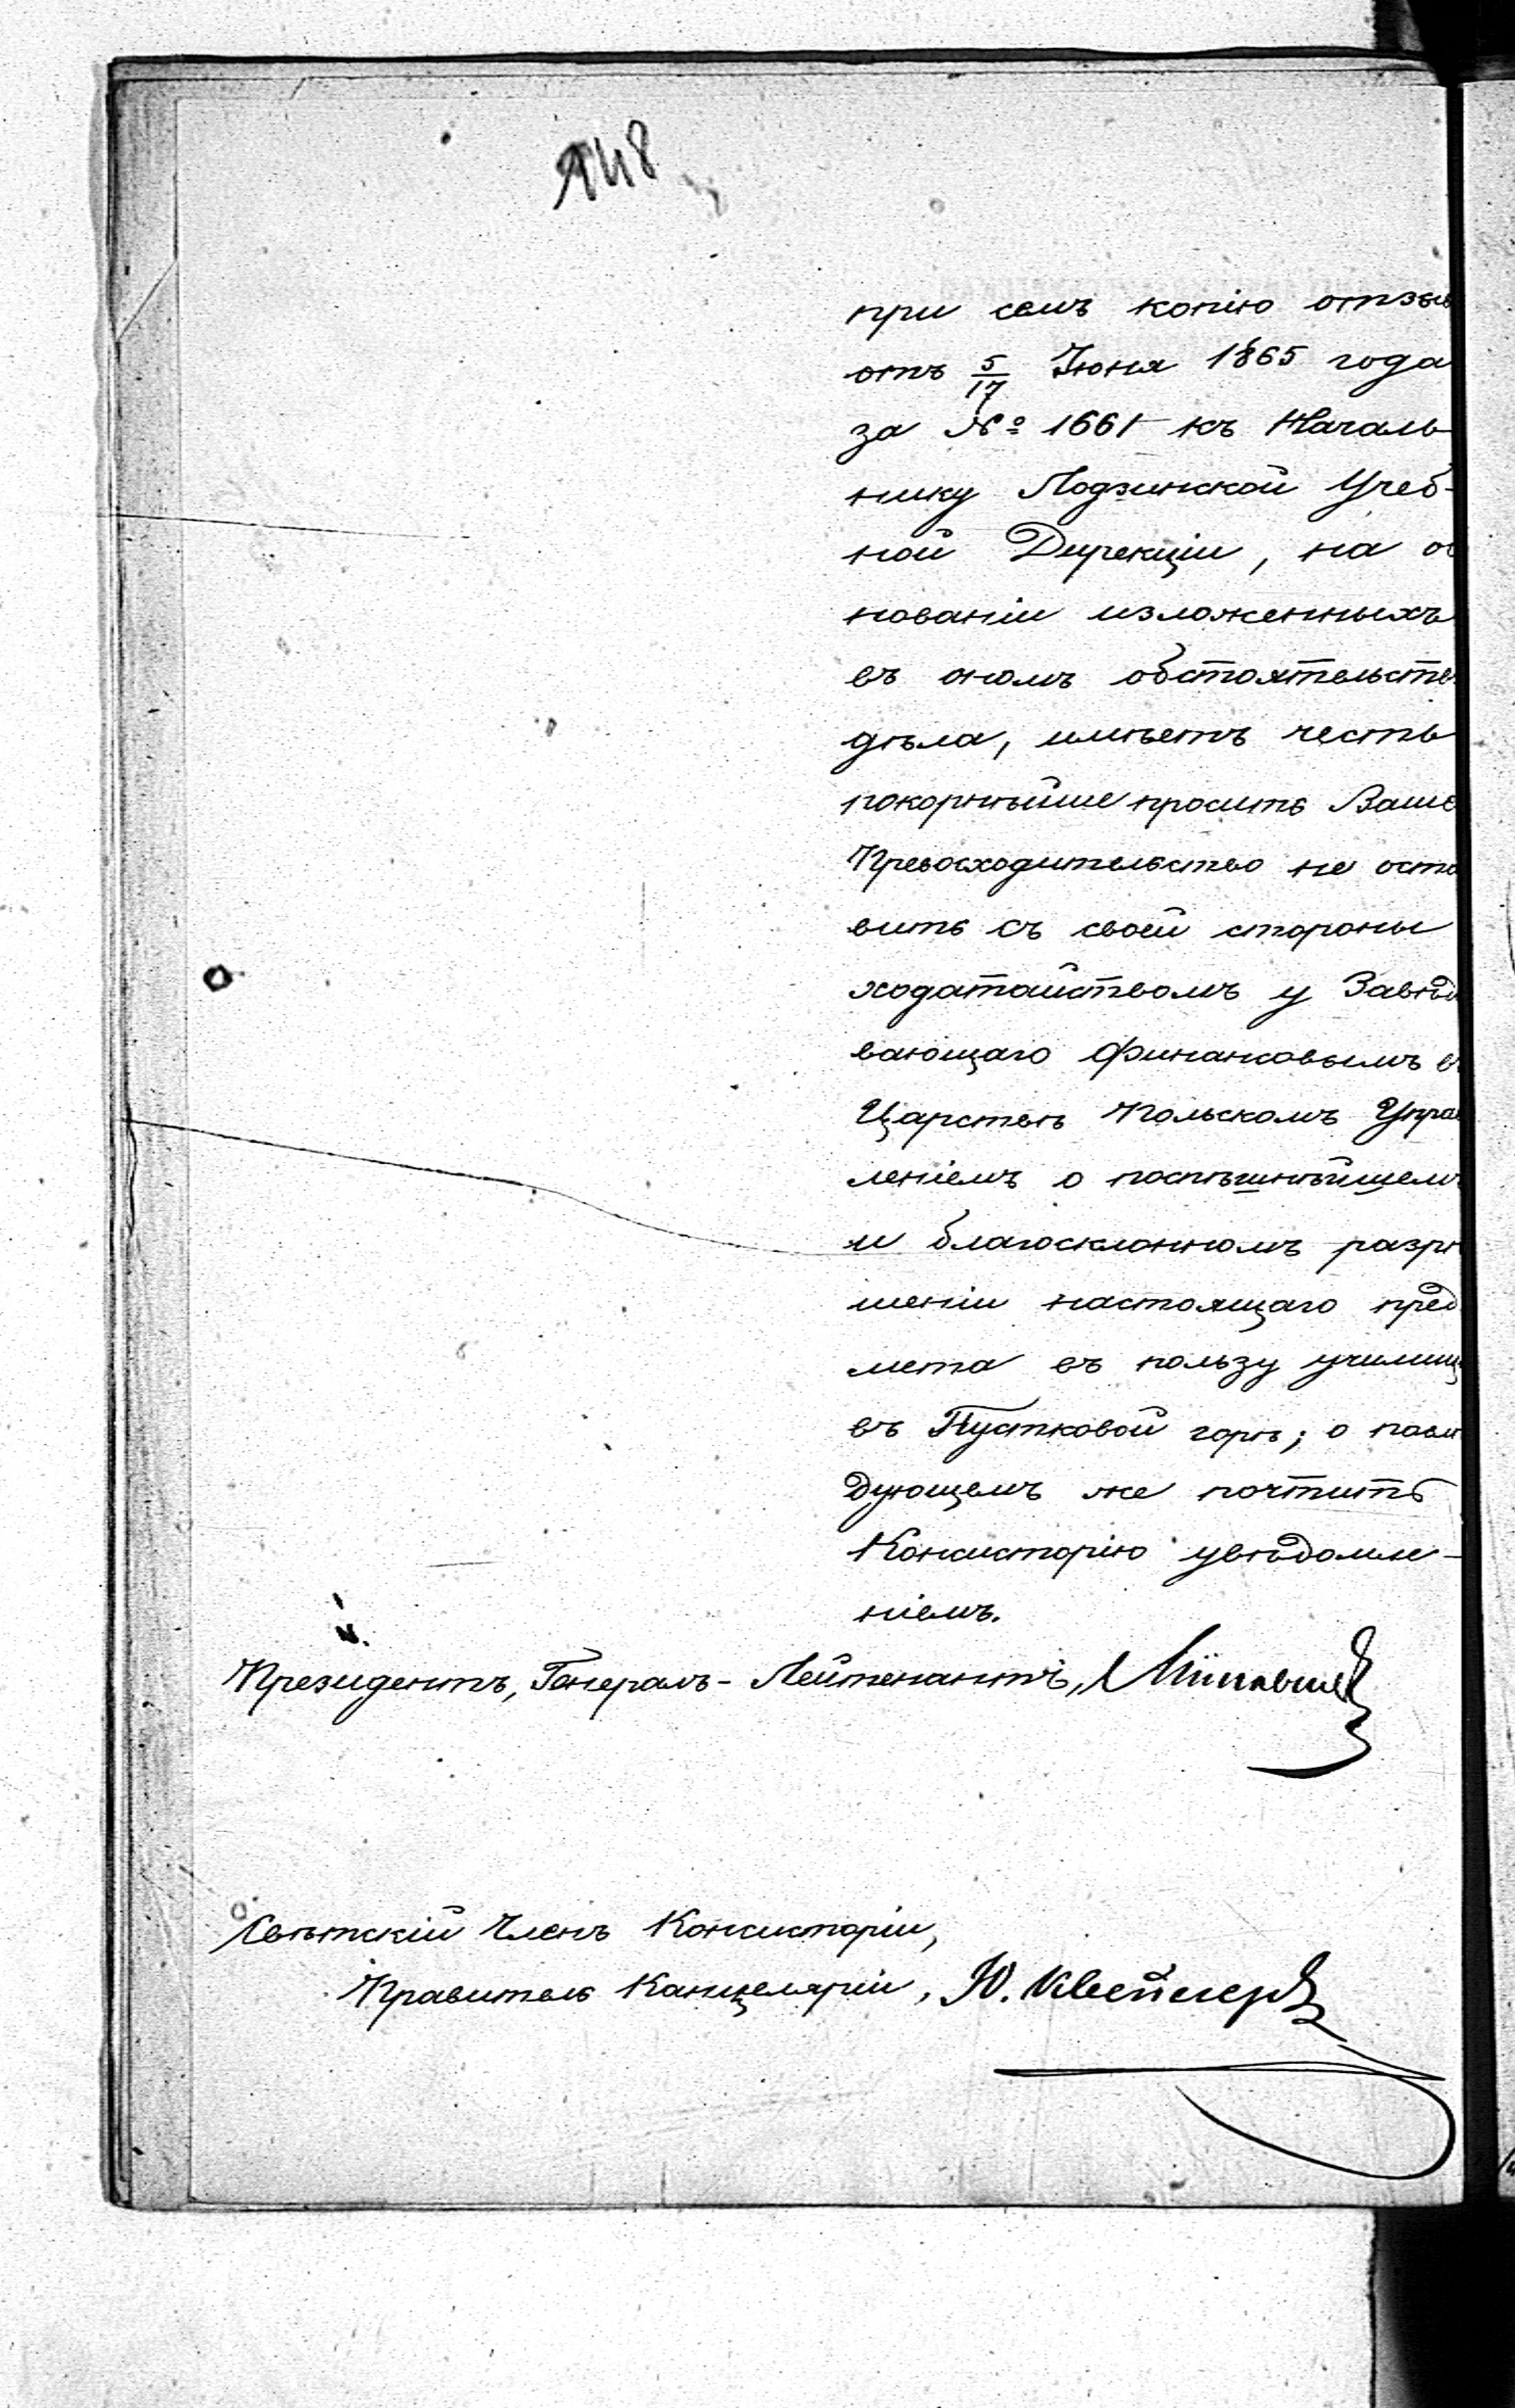 148
при семъ копію отзы
отъ 5/17 Іюня 1865 года
за № 1661 къ Началь
нику Лодзинской Учеб-
ной Дирекціи, на ос
нованіи изложенныхъ
въ ономъ обстоятельств
дѣла, имѣетъ честь
покорнѣйше просить Ваше
Превосходительство не оста
вить съ своей стороны
ходатайствомъ у Завѣды
вающаго Финансовымъ въ
Царствѣ Польскомъ Управ
леніемъ о поспѣшнѣйшемъ
и благосклонномъ разрѣ
шеніи настоящаго пред
мета въ пользу училищ
въ Пустковой горѣ; о послѣ
дующемъ же почтить
Консисторію увѣдомле-
ніемъ.
Президентъ, Генералъ-Лейтенантъ,
Свѣтскій Членъ Консисторіи,
Правитель Канцеляріи, Ю.